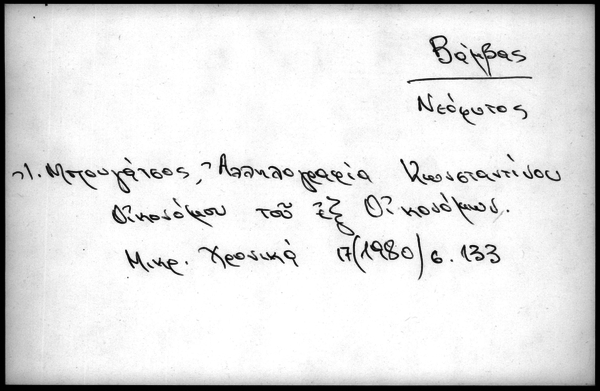 Βάμβας
Νεόφυτος
Ἰ. Μπουγάτσος, Ἀλληλογραφία Κωνσταντίνου
Οἰκονόμου τοῦ ἐξ Οἰκονόμων.
Μικρ. Χρονικά 17(1980) σ. 133